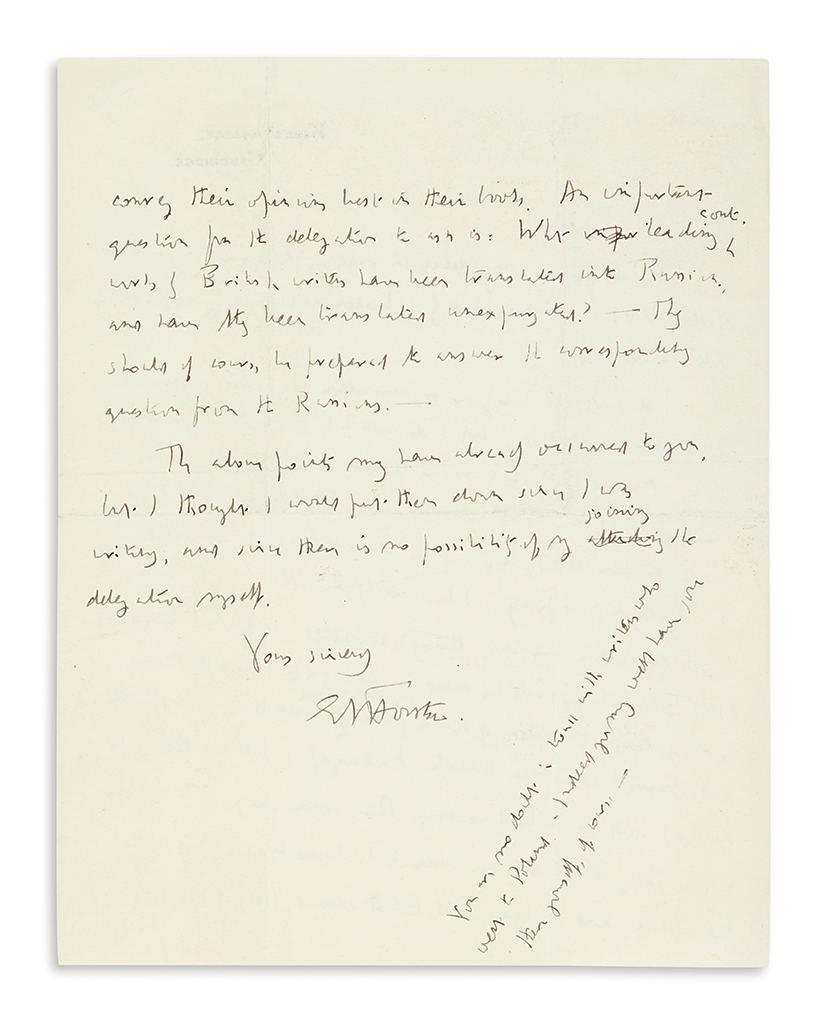 convey their opinions best in their books. An important
question for the delegation to ask is: What leading cont.
works of British writers have been translated into Russian,
and have they been translated unexpurgated? — They
should of course be prepared to answer the corresponding
question from the Russians. —
The above points may have already occurred to you,
but I thought I would put them down since I was
writing, and since there is no possibility of my joining the
delegation myself.
Yours sincerely
EM Forster.
You are no doubt in touch with writers who
went to Poland – indeed you may well have gone
there yourself, of course —